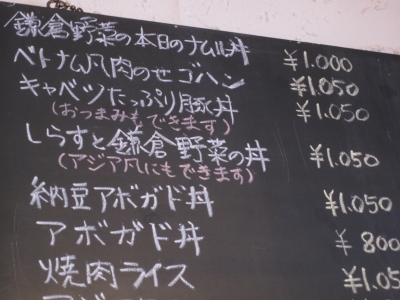 鎌倉野菜の本日のナムル丼 ¥1.000
ベトナム風肉のせゴハン ¥1.050
キャベツたっぷり豚丼 ¥1.050
(おつまみもできます)
しらすと鎌倉野菜の丼 ¥1.050
(アジア風にもできます)
納豆アボガド丼 ¥1.050
アボガド丼 ¥800
焼肉ライス ¥1.05